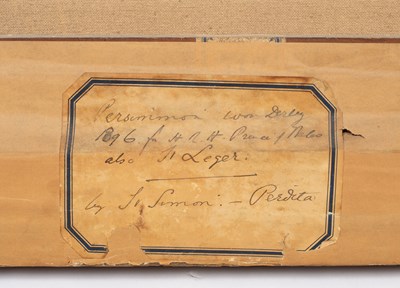 Persimmon won Derby
1896 for H R H Prince / Wales
also St Leger.
by St Simon: - Perdita